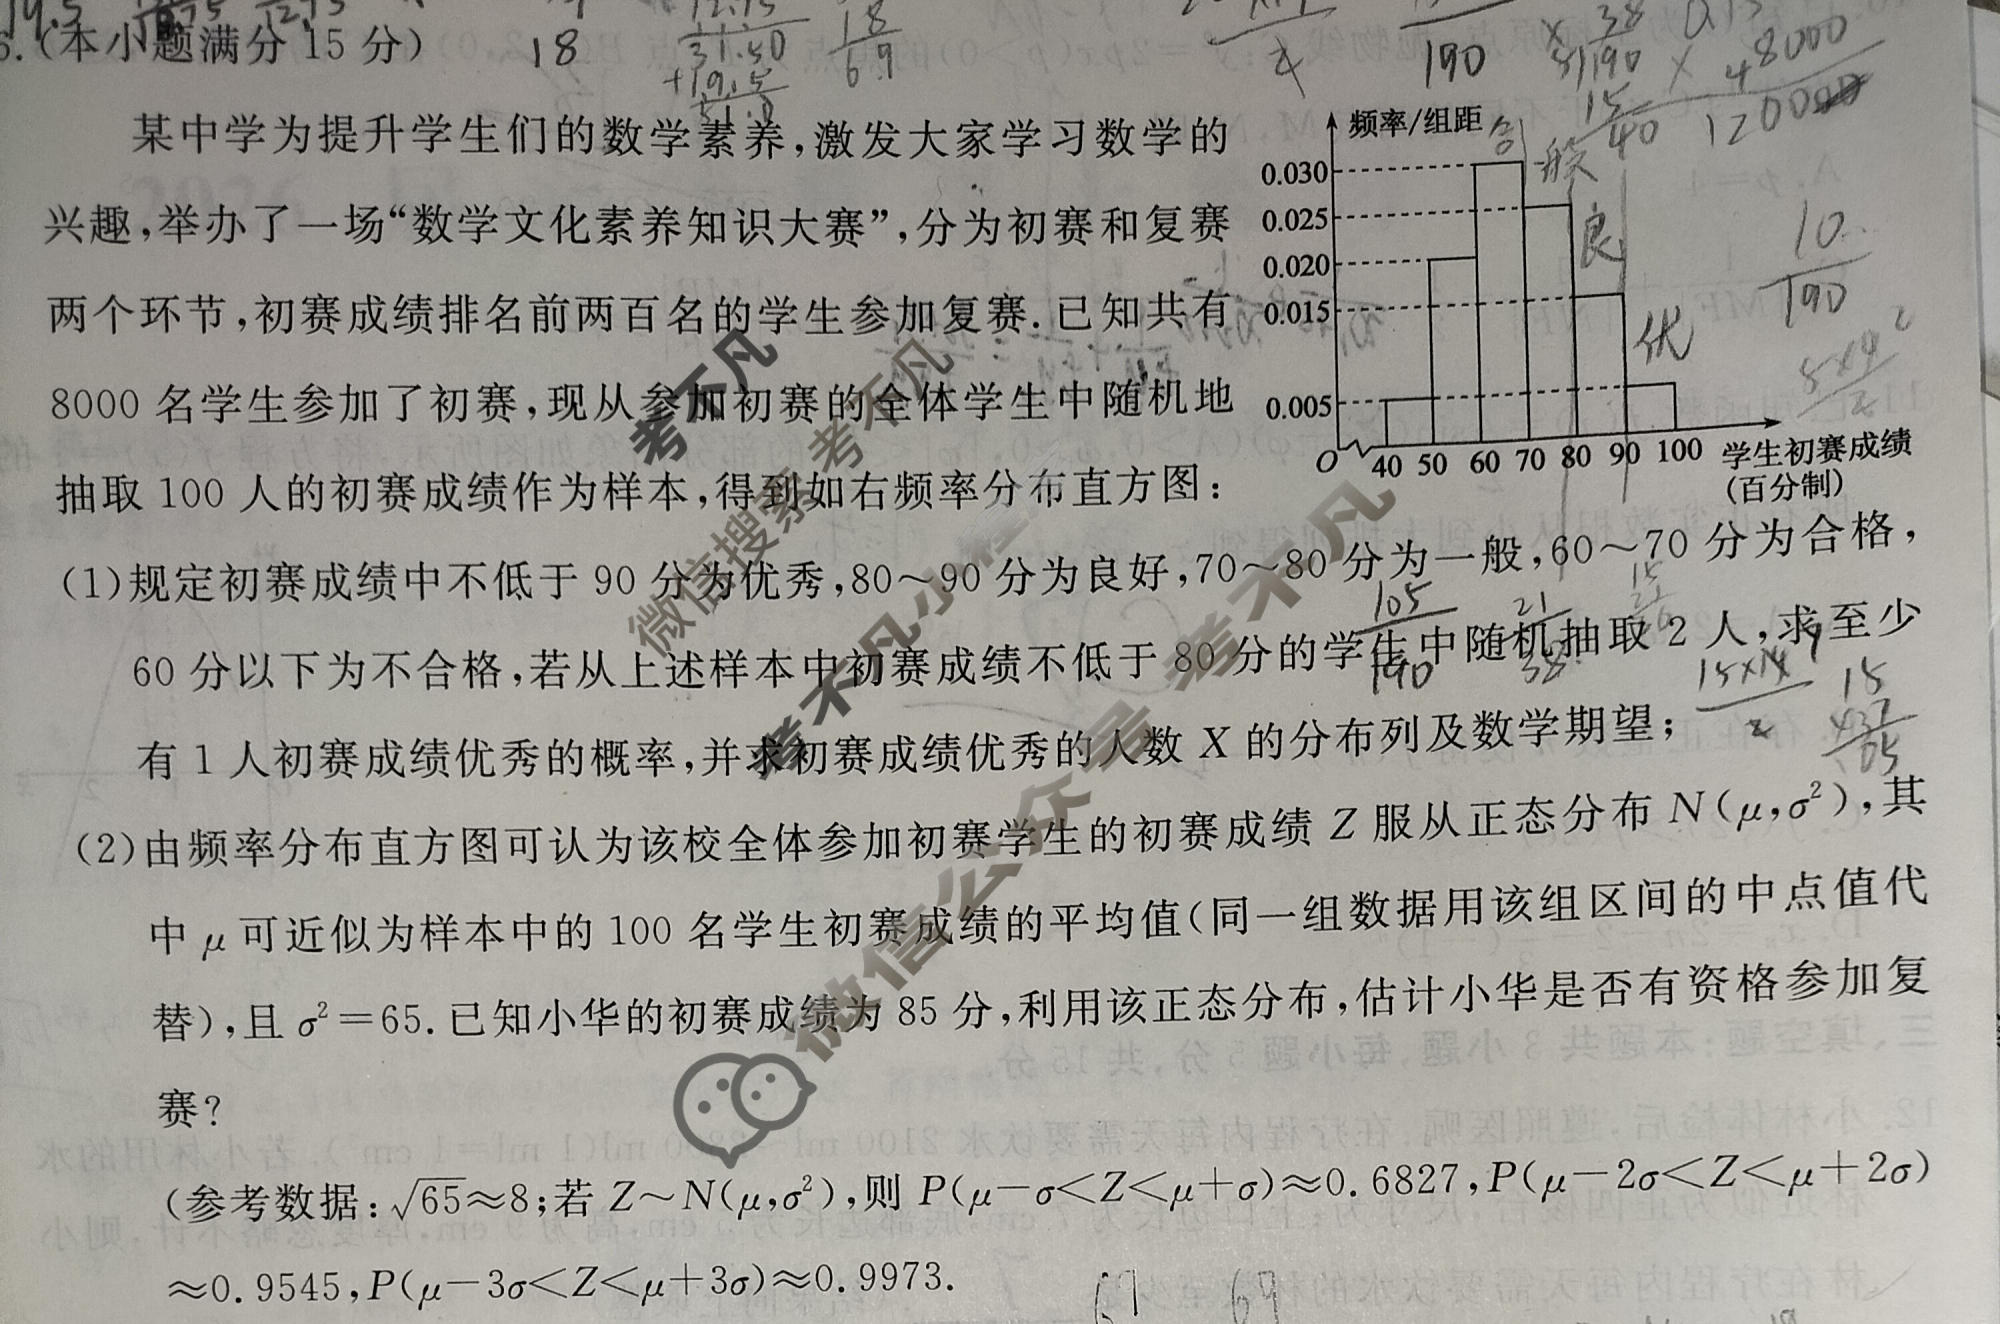 .(本小题满分 15 分)
18
31.50
+19.5
51.0
18
69
190
38
190
48000
频率/组距
0.030
0.025
0.020
0.015
0.005
O 40 50 60 70 80 90 100 学生初赛成绩
(百分制)
合
一般
良
优
10
190
某中学为提升学生们的数学素养,激发大家学习数学的
兴趣,举办了一场“数学文化素养知识大赛”,分为初赛和复赛
两个环节,初赛成绩排名前两百名的学生参加复赛.已知共有
8000 名学生参加了初赛,现从参加初赛的全体学生中随机地
抽取 100 人的初赛成绩作为样本,得到如右频率分布直方图:
(1)规定初赛成绩中不低于 90 分为优秀,80~90 分为良好,70~80 分为一般,60~70 分为合格,
105
190
21
38
60 分以下为不合格,若从上述样本中初赛成绩不低于 80 分的学生中随机抽取 2 人,求至少
15×14
2
有 1 人初赛成绩优秀的概率,并求初赛成绩优秀的人数 X 的分布列及数学期望;
(2)由频率分布直方图可认为该校全体参加初赛学生的初赛成绩 Z 服从正态分布 N(μ,σ²),其
中 μ 可近似为样本中的 100 名学生初赛成绩的平均值(同一组数据用该组区间的中点值代
替),且 σ²=65.已知小华的初赛成绩为 85 分,利用该正态分布,估计小华是否有资格参加复
赛?
(参考数据:√65≈8;若 Z~N(μ,σ²),则 P(μ-σ<Z<μ+σ)≈0.6827,P(μ-2σ<Z<μ+2σ)
≈0.9545,P(μ-3σ<Z<μ+3σ)≈0.9973.
67
69
考不凡
微信搜索 考不凡
考不凡小程序
微信公众号 考不凡